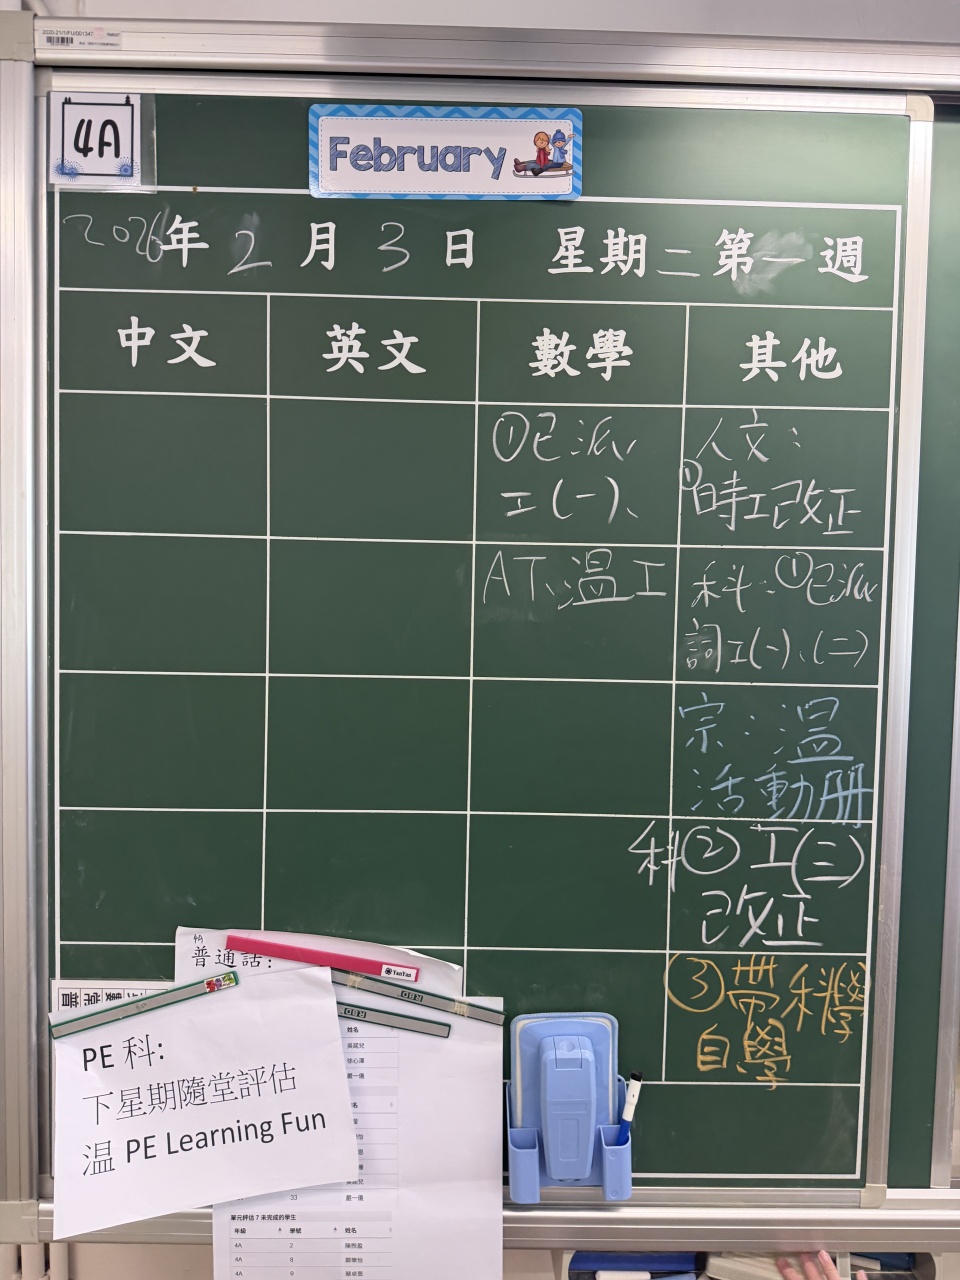 4A
February
2026年2月3日 星期二第一週
中文 英文 數學 其他
①已派
工(一)、
AT、溫工
人文：
①時工已改正
科：①已派
詞工(一)、(二)
宗：溫
活動册
科②工(三)
已改正
③帶科學
自學
普通話:
YanYan
PE 科:
下星期隨堂評估
溫 PE Learning Fun
姓名
嚴一僖
33 嚴一僖
單元評估 7 未完成的學生
年級 學號 姓名
4A 2
4A 8
4A 9